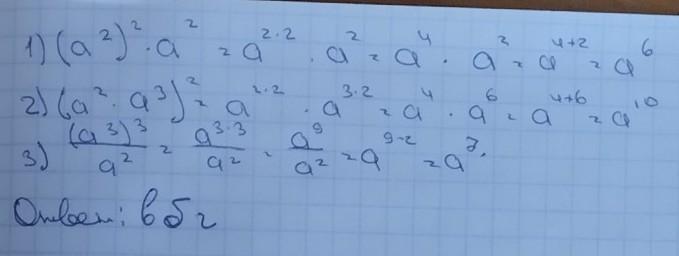 1) (a²)² · a² = a²·² · a² = a⁴ · a² = a⁴⁺² = a⁶
2) (a² · a³)² = a²·² · a³·² = a⁴ · a⁶ = a⁴⁺⁶ = a¹⁰
3) (a³)³/a² = a³·³/a² = a⁹/a² = a⁹⁻² = a⁷.
Ответ: в б г